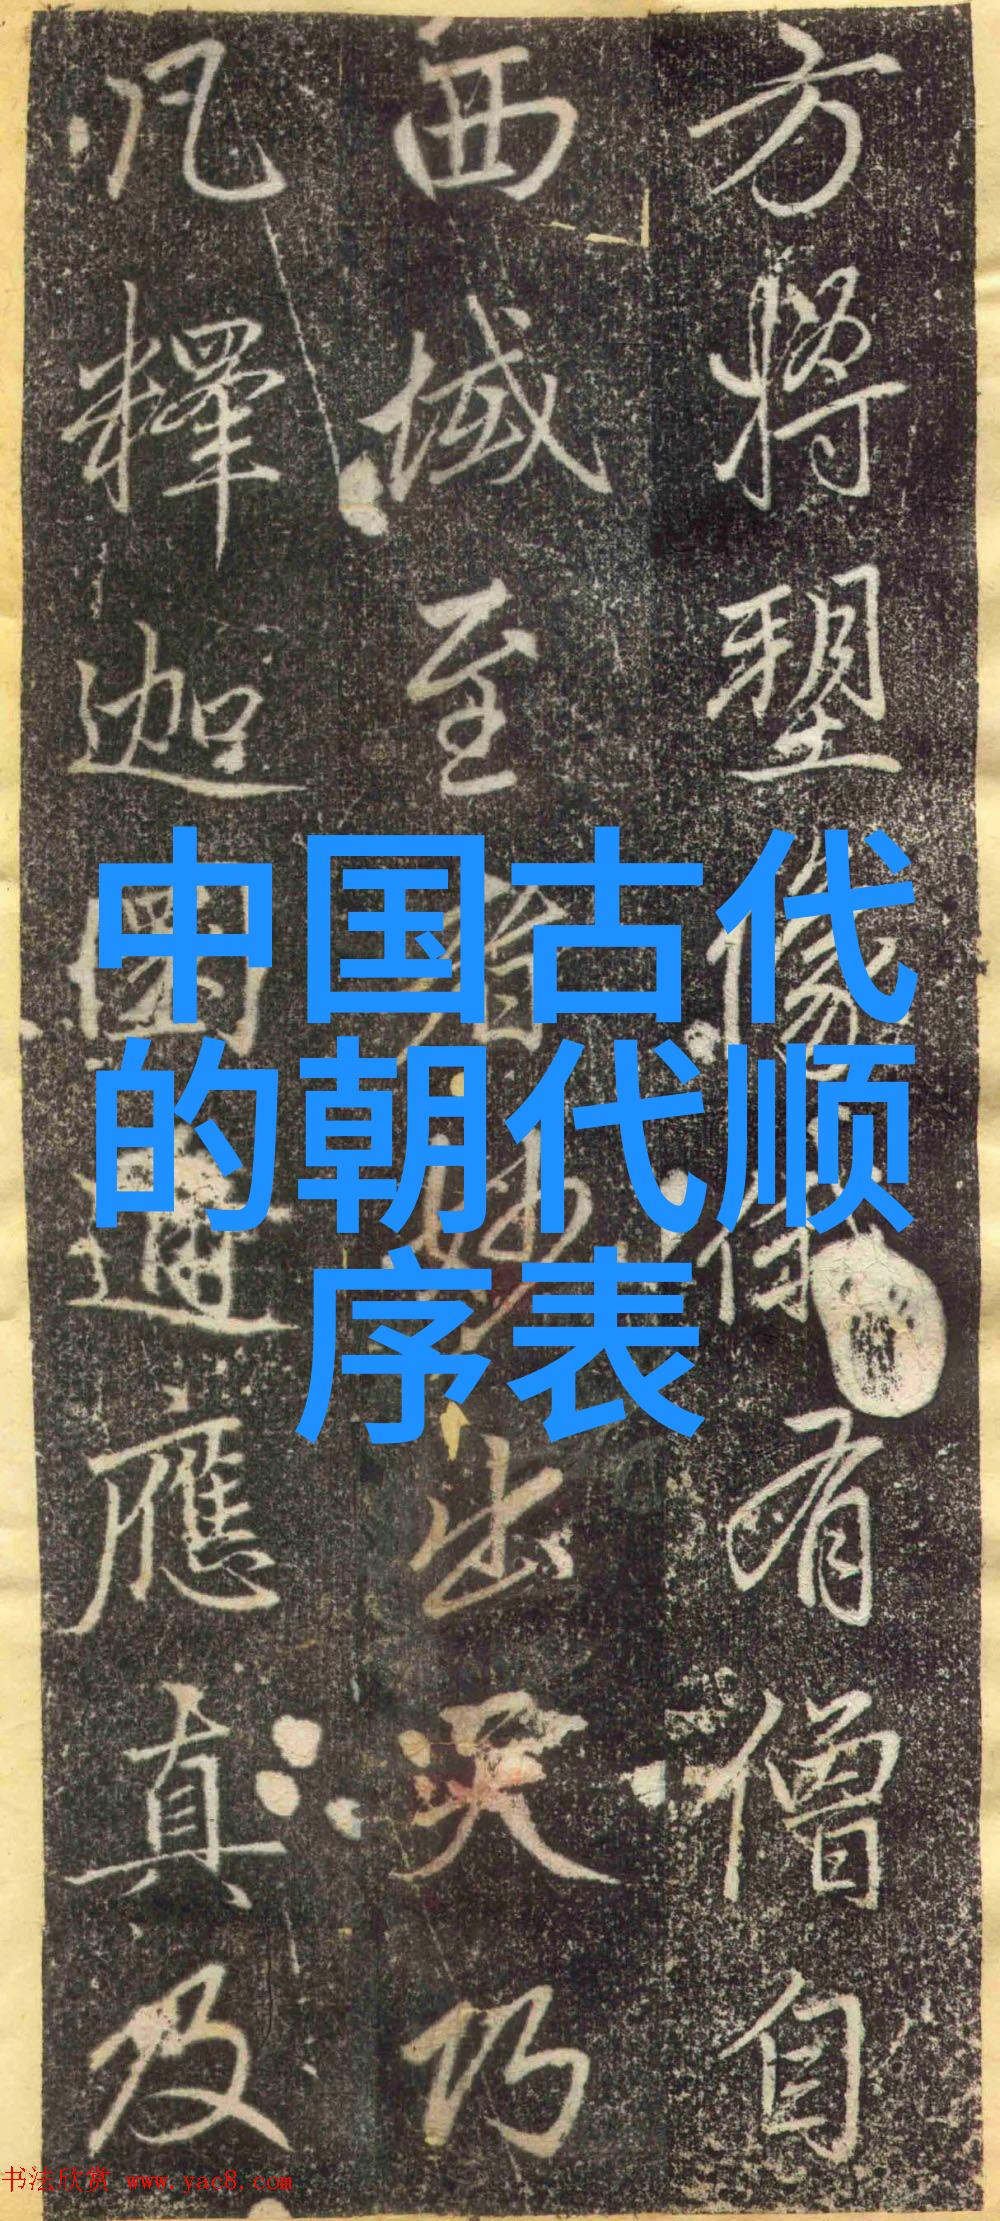 方将塑像係有僧自
西域至 出天乃
凡釋迦 通應真及
中国古代
的朝代顺
序表
书法欣赏 www.yac8.com